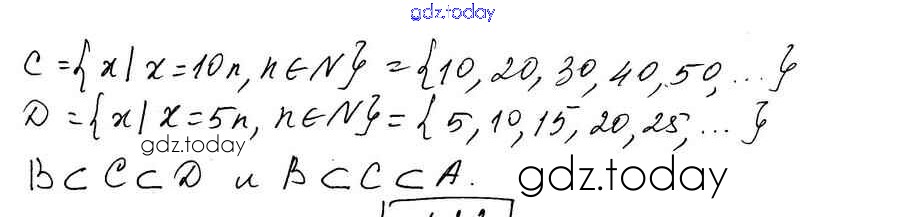 gdz.today
C={x|x=10n, n∈N}={10, 20, 30, 40, 50, ...}
D={x|x=5n, n∈N}={5, 10, 15, 20, 25, ...}
gdz.today
B⊂C⊂D и B⊂C⊂A.
gdz.today